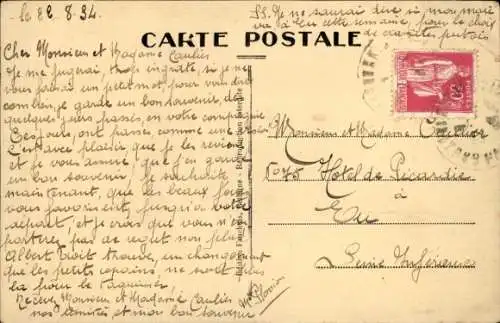 le 22.8.34.
P.S. Je ne saurai dire si mon mari
va à Eu cette semaine, pour le choix
de
CARTE POSTALE
Cher Monsieur et Madame Caulier
Je me jugerai trop ingrate si je ne
vous faisais un petit mot, pour vous dire
combien je garde un bon souvenir, des
quelques jours passés, en votre compagnie
Ces jours, ont passés comme une
C'est avec plaisir que je les revois
et je vous assure que j'en garde
un bon souvenir. Je souhaite,
maintenant, que les beaux jours
vous favorisent, jusqu'à votre
départ, et je crois que vous n'en
partirez pas de regret non plus
Albert doit trouve, un changement
que les petits copains ne sont plus
la pour le taquiner
Recevez Monsieur et Madame Caulier
nos amitiés et mon bon souvenir
Monsieur et Madame Caulier
Hotel de Picardie
à
Eu
Seine Inférieure
POSTES